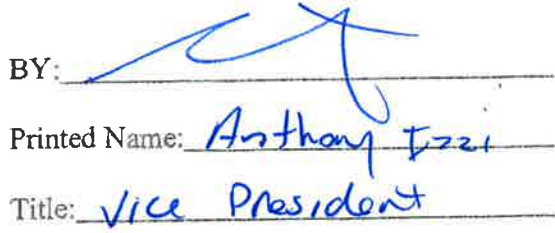 BY:
Printed Name: Anthony Izzi
Title: Vice President